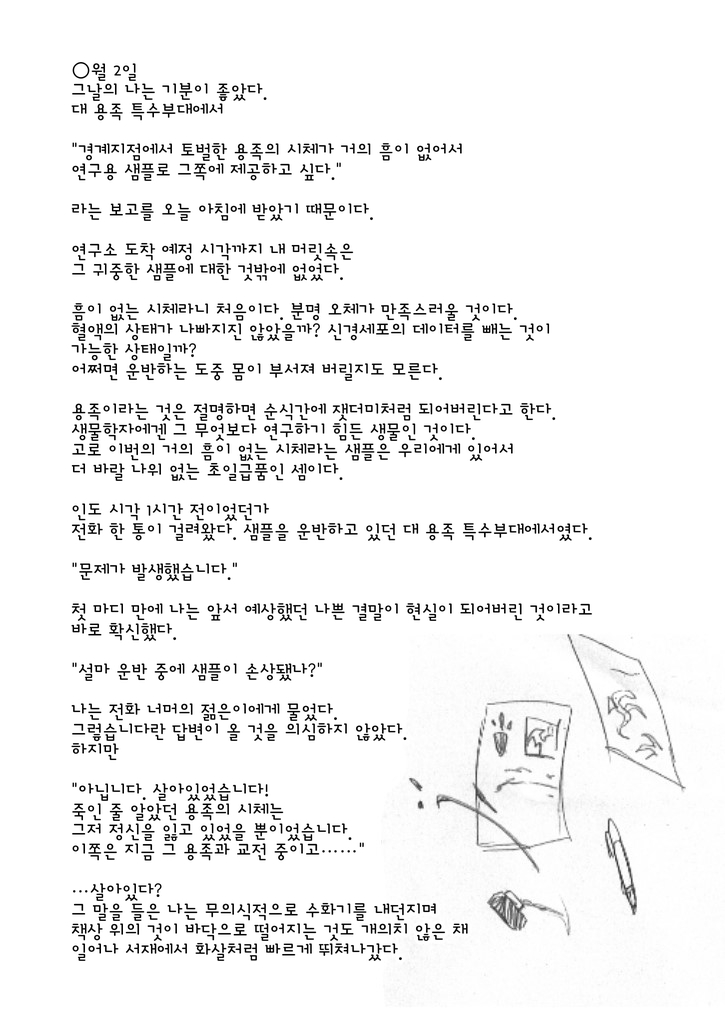 ○월 2일
그날의 나는 기분이 좋았다.
대 용족 특수부대에서
"경계지점에서 토벌한 용족의 시체가 거의 흠이 없어서
연구용 샘플로 그쪽에 제공하고 싶다."
라는 보고를 오늘 아침에 받았기 때문이다.
연구소 도착 예정 시각까지 내 머릿속은
그 귀중한 샘플에 대한 것밖에 없었다.
흠이 없는 시체라니 처음이다. 분명 오체가 만족스러울 것이다.
혈액의 상태가 나빠지진 않았을까? 신경세포의 데이터를 빼는 것이
가능한 상태일까?
어쩌면 운반하는 도중 몸이 부서져 버릴지도 모른다.
용족이라는 것은 절명하면 순식간에 잿더미처럼 되어버린다고 한다.
생물학자에겐 그 무엇보다 연구하기 힘든 생물인 것이다.
고로 이번의 거의 흠이 없는 시체라는 샘플은 우리에게 있어서
더 바랄 나위 없는 초일급품인 셈이다.
인도 시각 1시간 전이었던가
전화 한 통이 걸려왔다. 샘플을 운반하고 있던 대 용족 특수부대에서였다.
"문제가 발생했습니다."
첫 마디 만에 나는 앞서 예상했던 나쁜 결말이 현실이 되어버린 것이라고
바로 확신했다.
"설마 운반 중에 샘플이 손상됐나?"
나는 전화 너머의 젊은이에게 물었다.
그렇습니다란 답변이 올 것을 의심하지 않았다.
하지만
"아닙니다. 살아있었습니다!
죽인 줄 알았던 용족의 시체는
그저 정신을 잃고 있었을 뿐이었습니다.
이쪽은 지금 그 용족과 교전 중이고……"
…살아있다?
그 말을 들은 나는 무의식적으로 수화기를 내던지며
책상 위의 것이 바닥으로 떨어지는 것도 개의치 않은 채
일어나 서재에서 화살처럼 빠르게 뛰쳐나갔다.